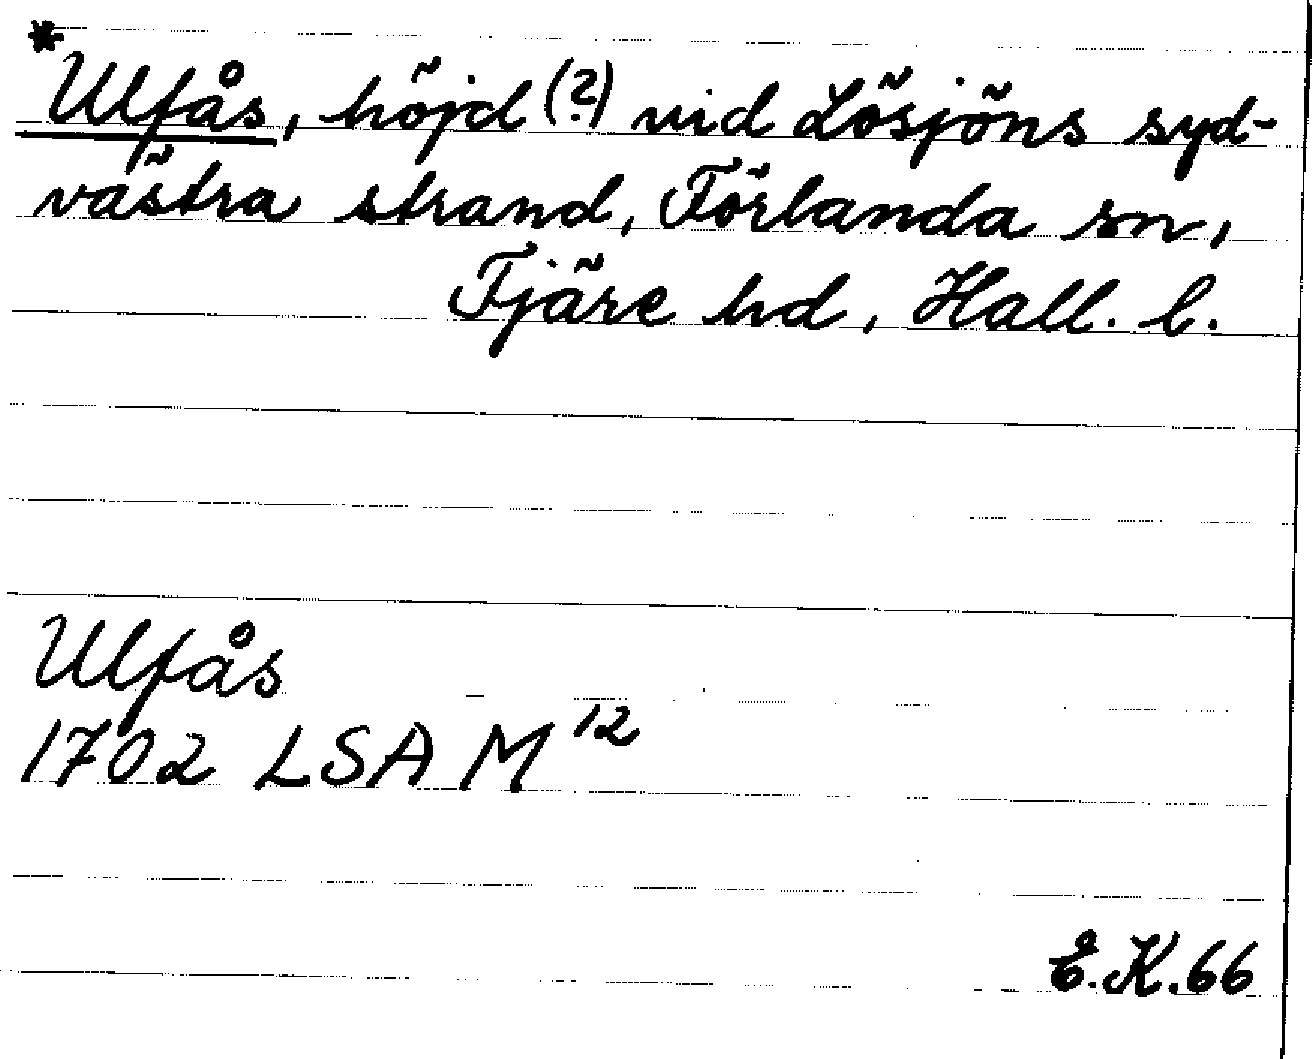 *Ulfås, höjd (?) vid Lösjöns syd-
västra strand, Förlanda sn,
Fjäre hd, Hall. l.
Ulfås
1702 LSA M 12
E.K. 66